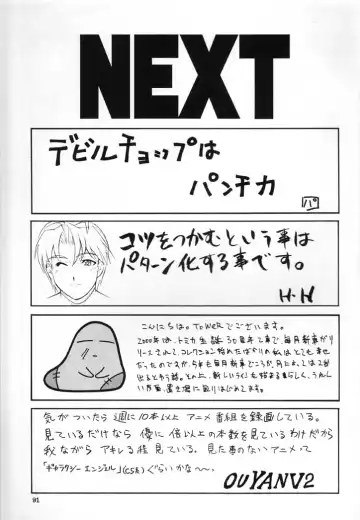 NEXT
デビルチョップは
パンチカ
パ
コツをつかむという事は
パターン化する事です。
H.H
こんにちは。TOWERでございます。
2000年は、トミカ生誕30周年で事で、毎月新車がリ
リースされて、コレクション始めたばかりの私はとても幸せ
だったのですが、今年も毎月新車どころか、月によっては2台
出るとゆう話。
置き場に困りはじめてます。
気がついたら週に10本以上アニメ番組を録画している。
見ているだけなら優に倍以上の本数を見ているわけだから
我ながらアキレる程見ている。見た事のないアニメって
「ギャラクシーエンジェル」(CSね)ぐらいかな〜。
OUYANV2
91